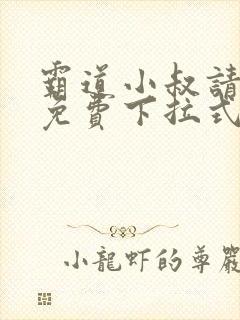 霸道小叔請
免費下拉式
小龍蝦的尊嚴